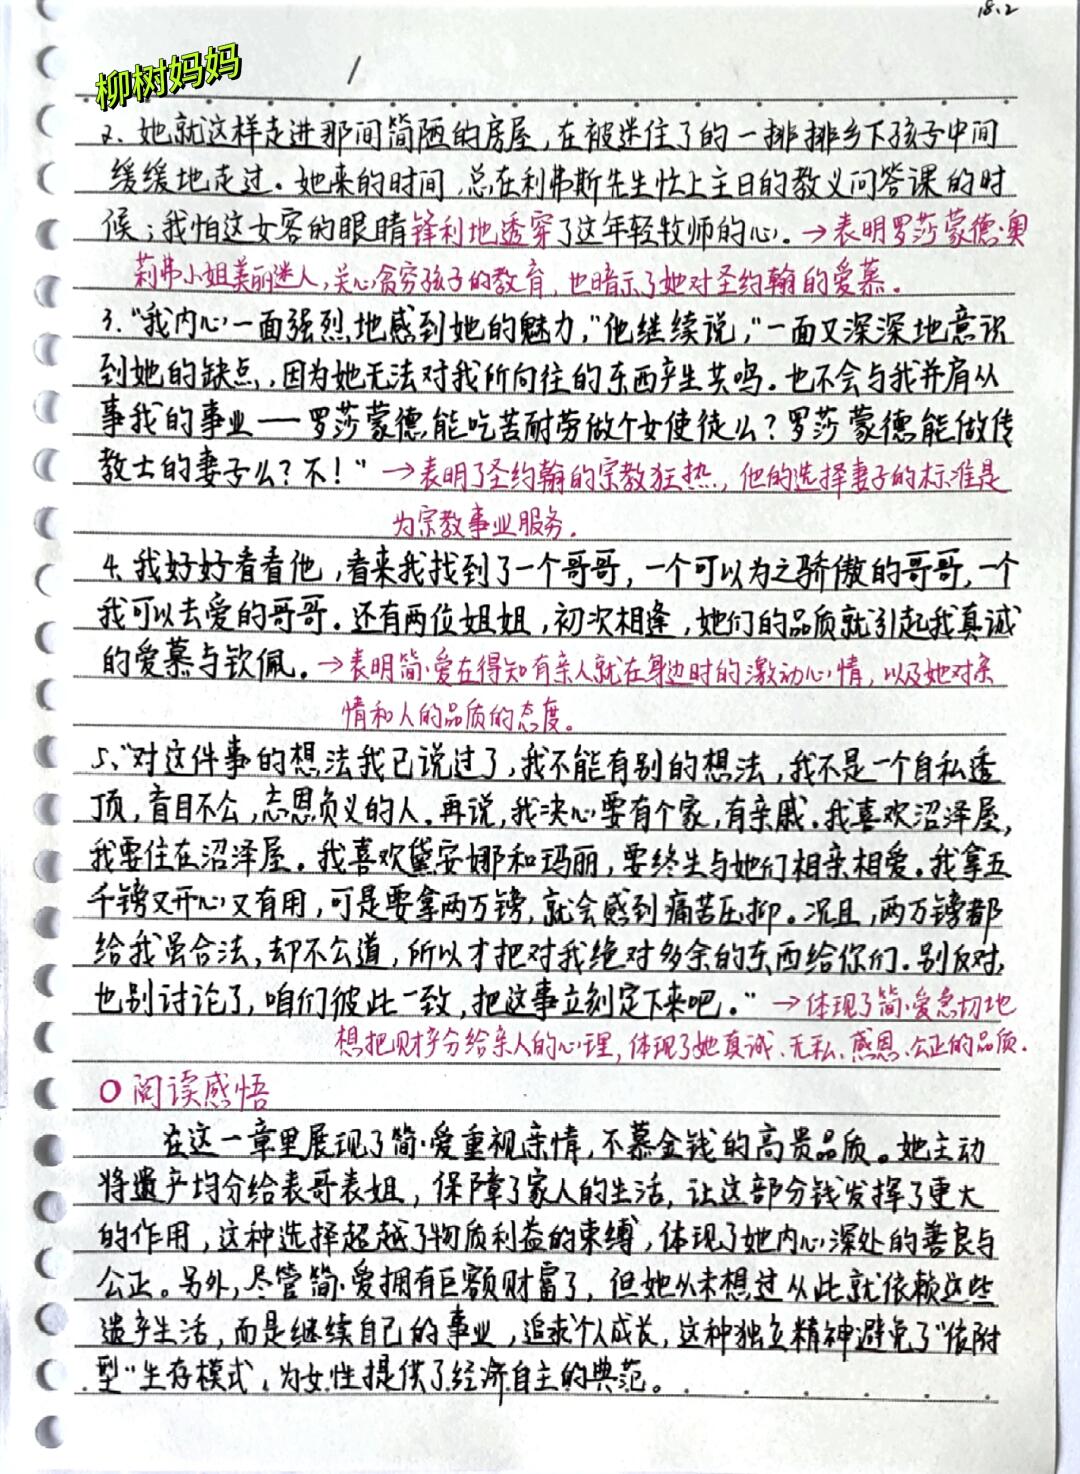 18.2
柳树妈妈
2、她就这样走进那间简陋的房屋，在被迷住了的一排排乡下孩子中间
缓缓地走过。她来的时间，总在利弗斯先生忙上主日的教义问答课的时
候；我怕这女客的眼睛锋利地透穿了这年轻牧师的心。→表明罗莎蒙德·奥
莉弗小姐美丽迷人，关心贫穷孩子的教育，也暗示了她对圣约翰的爱慕。
3、“我内心一面强烈地感到她的魅力，”他继续说，“一面又深深地意识
到她的缺点，因为她无法对我所向往的东西产生共鸣。也不会与我并肩从
事我的事业——罗莎蒙德能吃苦耐劳做个女使徒么？罗莎蒙德能做传
教士的妻子么？不！”→表明了圣约翰的宗教狂热，他的选择妻子的标准是
为宗教事业服务。
4、我好好看看他，看来我找到了一个哥哥，一个可以为之骄傲的哥哥，一个
我可以去爱的哥哥。还有两位姐姐，初次相逢，她们的品质就引起我真诚
的爱慕与钦佩。→表明简·爱在得知有亲人就在身边时的激动心情，以及她对亲
情和人的品质的态度。
5、“对这件事的想法我已说过了，我不能有别的想法，我不是一个自私透
顶，盲目不公，忘恩负义的人。再说，我决心要有个家，有亲戚。我喜欢沼泽屋，
我要住在沼泽屋。我喜欢黛安娜和玛丽，要终生与她们相亲相爱。我拿五
千镑又开心又有用，可是要拿两万镑，就会感到痛苦压抑。况且，两万镑都
给我虽合法，却不公道，所以才把对我绝对多余的东西给你们。别反对，
也别讨论了，咱们彼此一致，把这事立刻定下来吧。”→体现了简·爱急切地
想把财产分给亲人的心理，体现了她真诚、无私、感恩、公正的品质。
○阅读感悟
在这一章里展现了简·爱重视亲情，不慕金钱的高贵品质。她主动
将遗产均分给表哥表姐，保障了家人的生活，让这部分钱发挥了更大
的作用，这种选择超越了物质利益的束缚，体现了她内心深处的善良与
公正。另外，尽管简·爱拥有巨额财富了，但她从未想过从此就依赖这些
遗产生活，而是继续自己的事业，追求个人成长，这种独立精神避免了“依附
型”生存模式，为女性提供了经济自主的典范。